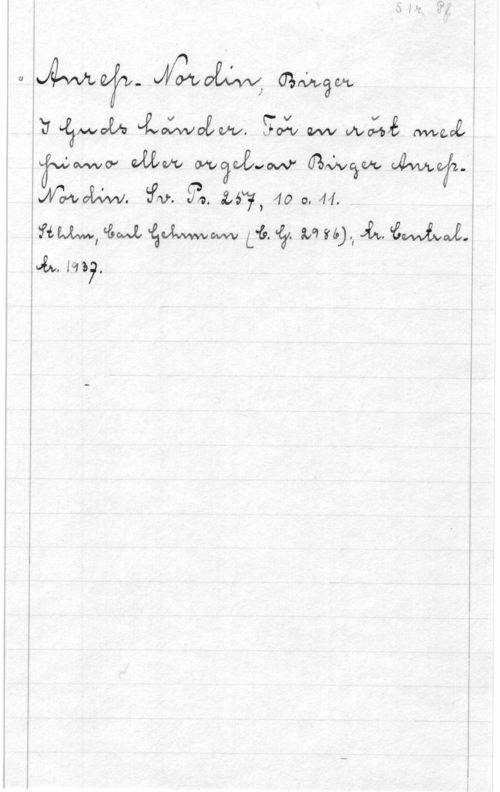 S 1 r, Pf.
Anrep-Nordin, Birger
I Guds händer. För en röst med
piano eller orgel av Birger Anrep-
Nordin. Sv. Ps. 257, 10 o. 11.
Sthlm, Carl Gehrman (C. G. 2986); tr. Central-
tr. 1937.